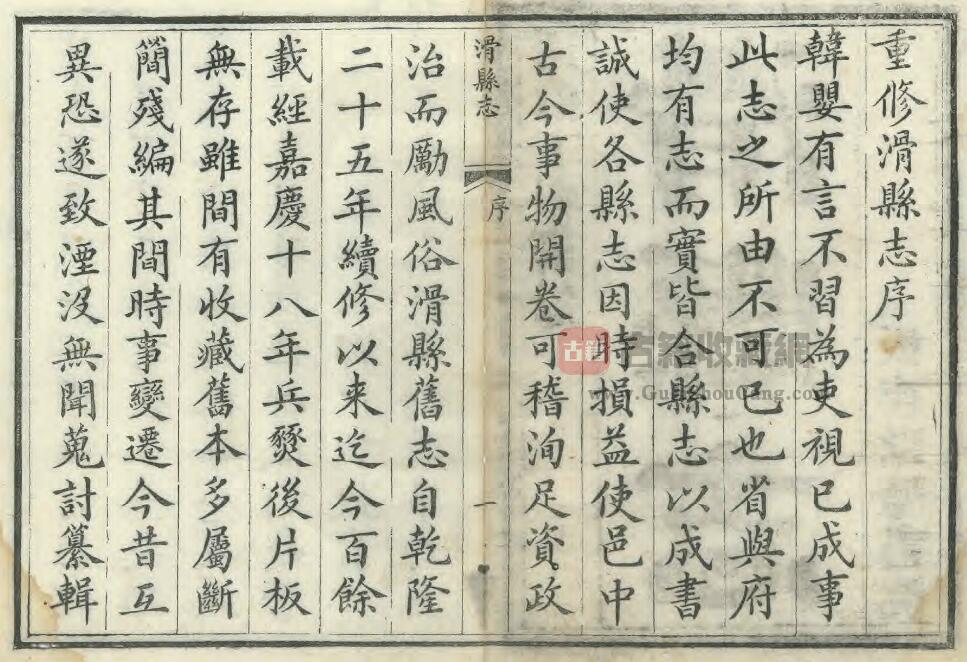 重修滑縣志序
韓嬰有言不習為吏視已成事
此志之所由不可已也省與府
均有志而實皆合縣志以成書
誠使各縣志因時損益使邑中
古今事物開卷可稽洵足資政
滑縣志
序
一
治而勵風俗滑縣舊志自乾隆
二十五年續修以来迄今百餘
載經嘉慶十八年兵燹後片板
無存雖間有收藏舊本多屬斷
簡殘編其間時事變遷今昔互
異恐遂致湮没無聞蒐討纂輯
古籍
古籍收藏網
www.GuJiShouCang.com